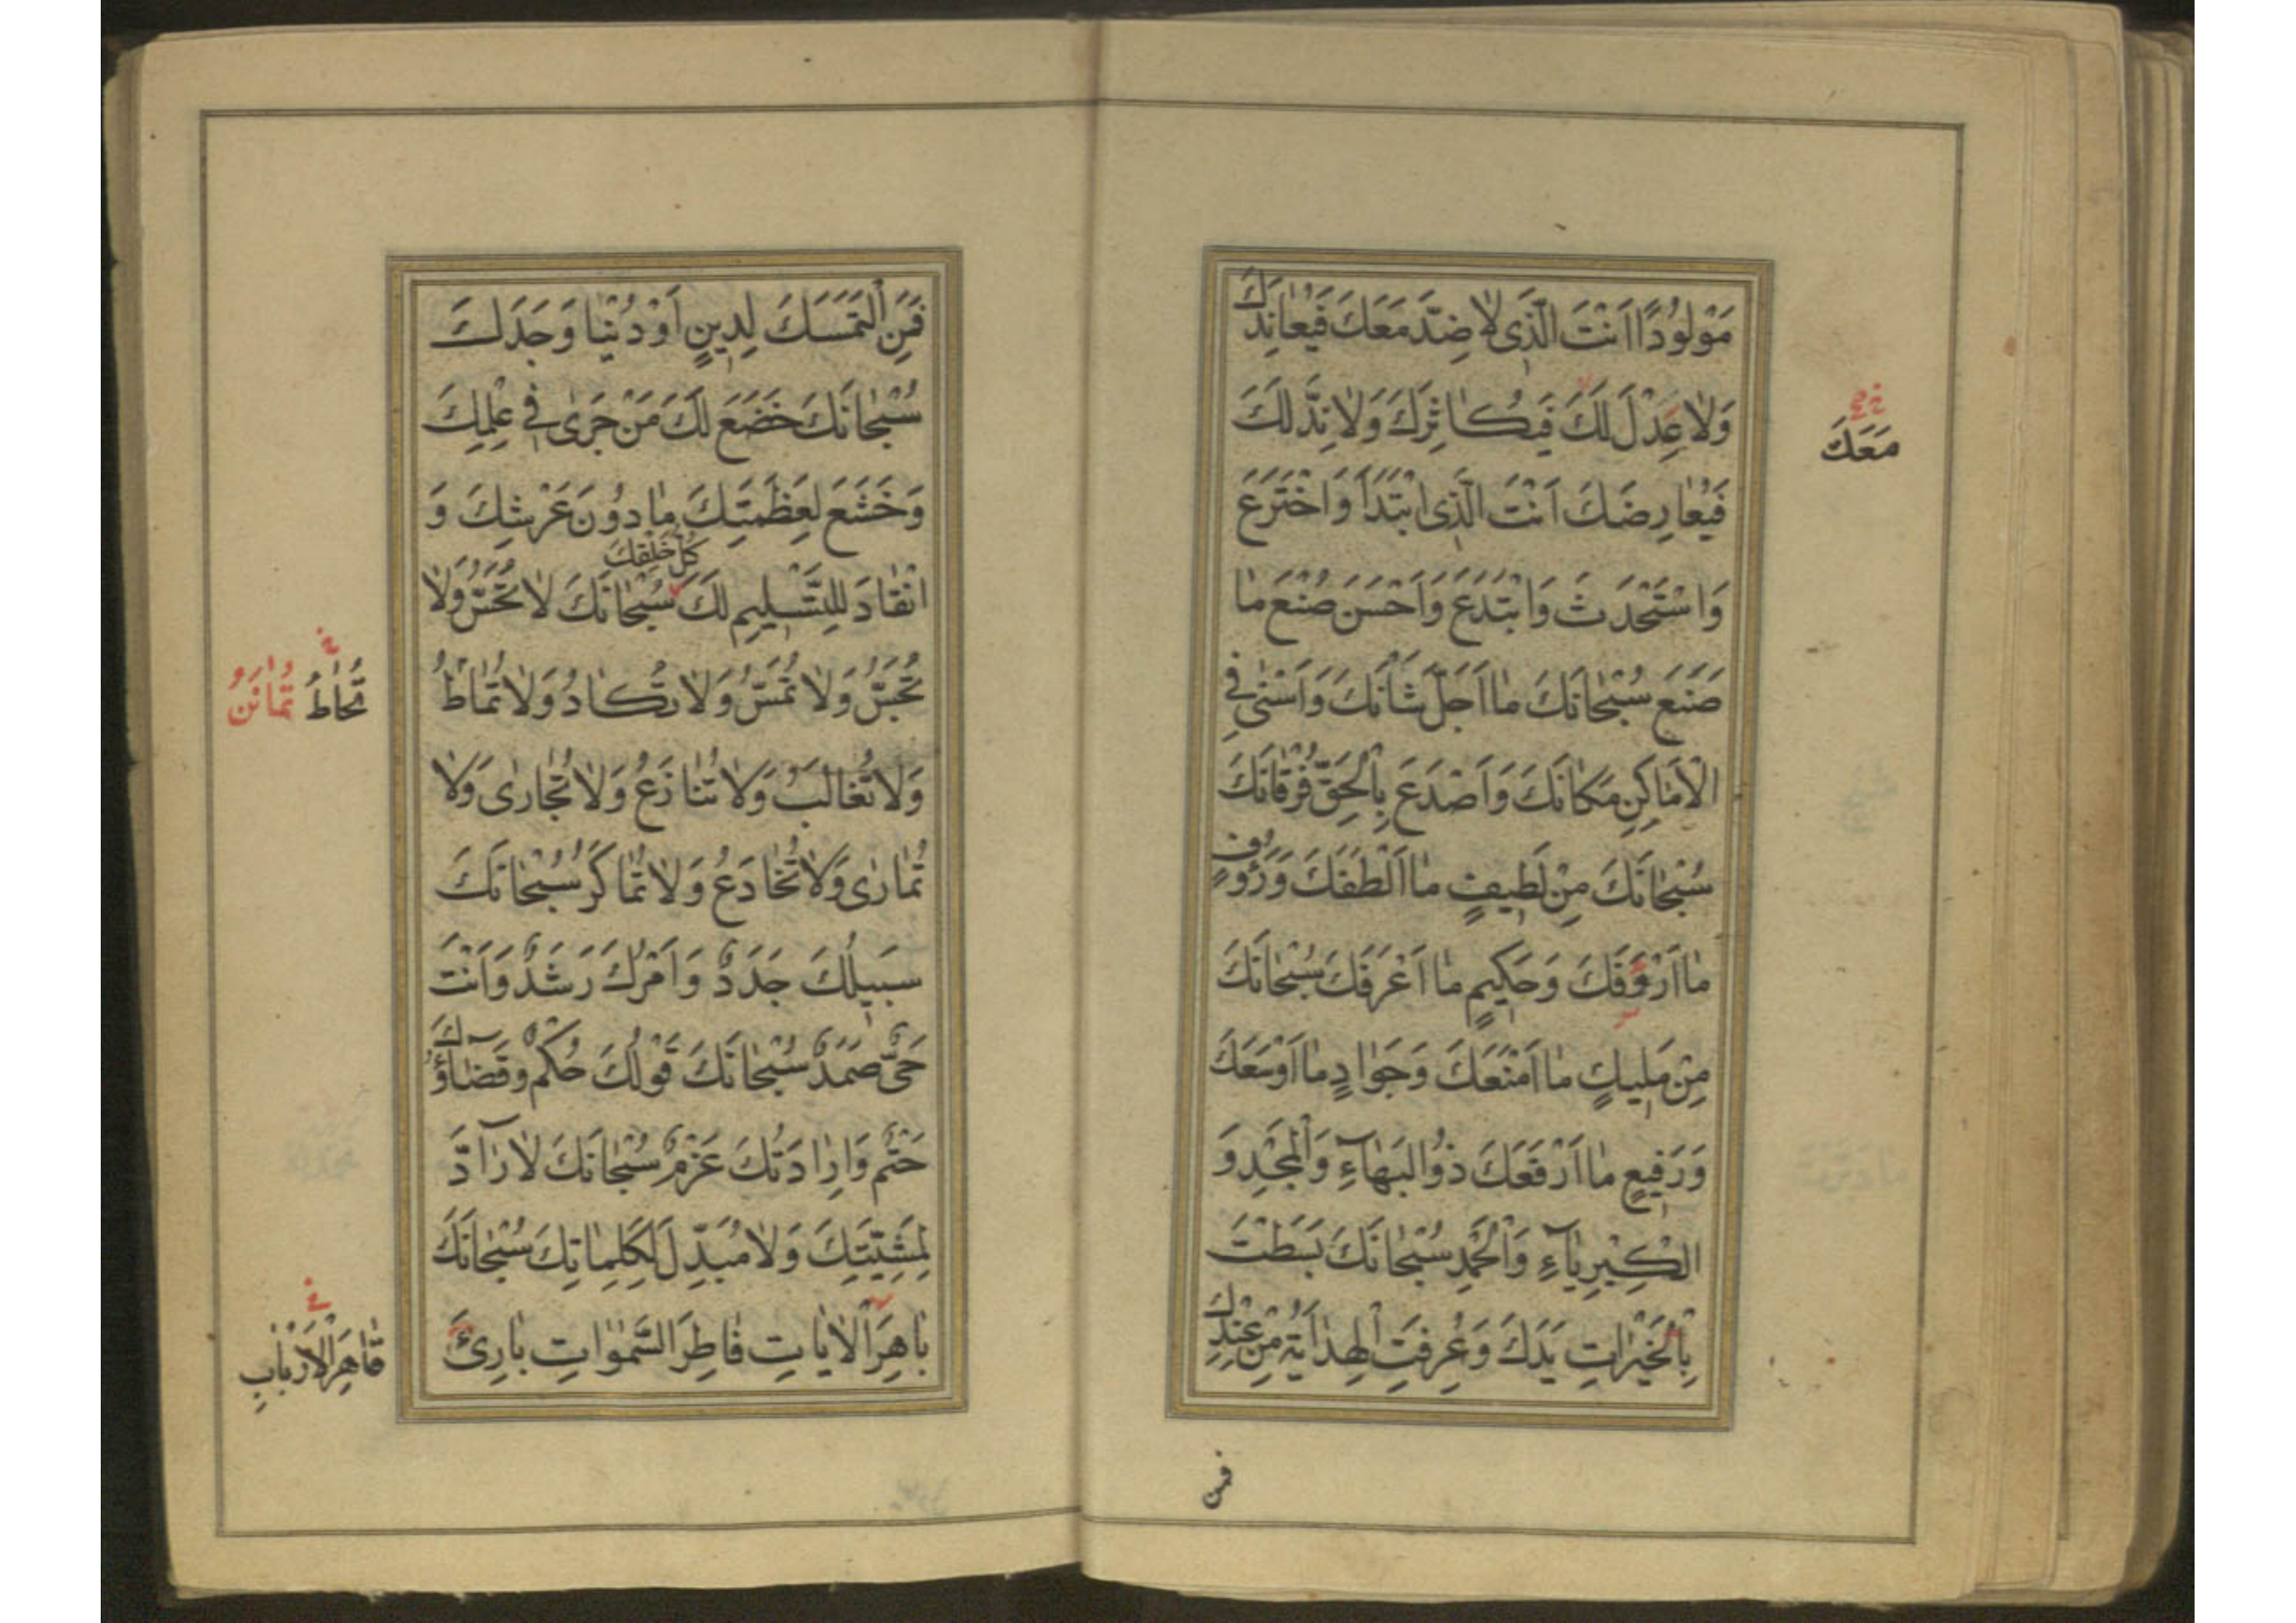 مَوْلُودًا اَنْتَ الَّذِى لٰا ضِدَّ مَعَكَ فَيُعٰانِدَكَ
وَلٰا عِدْلَ لَكَ فَيُكٰاثِرَكَ وَلٰا نِدَّ لَكَ
مَعَكَ
فَيُعٰارِضَكَ اَنْتَ الَّذِى ابْتَدَاَ وَاخْتَرَعَ
وَاسْتَحْدَثَ وَابْتَدَعَ وَاَحْسَنَ صُنْعَ مٰا
صَنَعَ سُبْحٰانَكَ مٰا اَجَلَّ شَاْنَكَ وَاَسْنٰى فِى
الْاَمٰاكِنِ مَكٰانَكَ وَاَصْدَعَ بِالْحَقِّ فُرْقٰانَكَ
سُبْحٰانَكَ مِنْ لَطِيفٍ مٰا اَلْطَفَكَ وَرَؤُوفٍ
مٰا اَرْؤَفَكَ وَحَكِيمٍ مٰا اَعْرَفَكَ سُبْحٰانَكَ
مِنْ مَلِيكٍ مٰا اَمْنَعَكَ وَجَوٰادٍ مٰا اَوْسَعَكَ
وَرَفِيعٍ مٰا اَرْفَعَكَ ذُو الْبَهٰاءِ وَالْمَجْدِ وَ
الْكِبْرِيٰاءِ وَالْحَمْدِ سُبْحٰانَكَ بَسَطْتَ
بِالْخَيْرٰاتِ يَدَكَ وَعُرِفَتِ الْهِدٰايَةُ مِنْ عِنْدِكَ
فمن
فَمَنِ الْتَمَسَكَ لِدِينٍ اَوْ دُنْيٰا وَجَدَكَ
سُبْحٰانَكَ خَضَعَ لَكَ مَنْ جَرٰى فِى عِلْمِكَ
وَخَشَعَ لِعَظَمَتِكَ مٰا دُونَ عَرْشِكَ وَ
كُلُّ خَلْقِكَ
انْقٰادَ لِلتَّسْلِيمِ لَكَ سُبْحٰانَكَ لٰا تُحَسُّ وَلٰا
تُجَسُّ وَلٰا تُمَسُّ وَلٰا تُكٰادُ وَلٰا تُمٰاطُ
تُحٰاطُ
وَلٰا تُغٰالَبُ وَلٰا تُنٰازَعُ وَلٰا تُجٰارٰى وَلٰا
تُمٰارٰى وَلٰا تُخٰادَعُ وَلٰا تُمٰاكَرُ سُبْحٰانَكَ
سَبِيلُكَ جَدَدٌ وَاَمْرُكَ رَشَدٌ وَاَنْتَ
حَىٌّ صَمَدٌ سُبْحٰانَكَ قَوْلُكَ حُكْمٌ وَقَضٰاؤُكَ
حَتْمٌ وَاِرٰادَتُكَ عَزْمٌ سُبْحٰانَكَ لٰا رٰادَّ
لِمَشِيَّتِكَ وَلٰا مُبَدِّلَ لِكَلِمٰاتِكَ سُبْحٰانَكَ
بٰاهِرَ الْاٰيٰاتِ فٰاطِرَ السَّمٰوٰاتِ بٰارِئَ
قٰاهِرَ الْاَرْبٰابِ